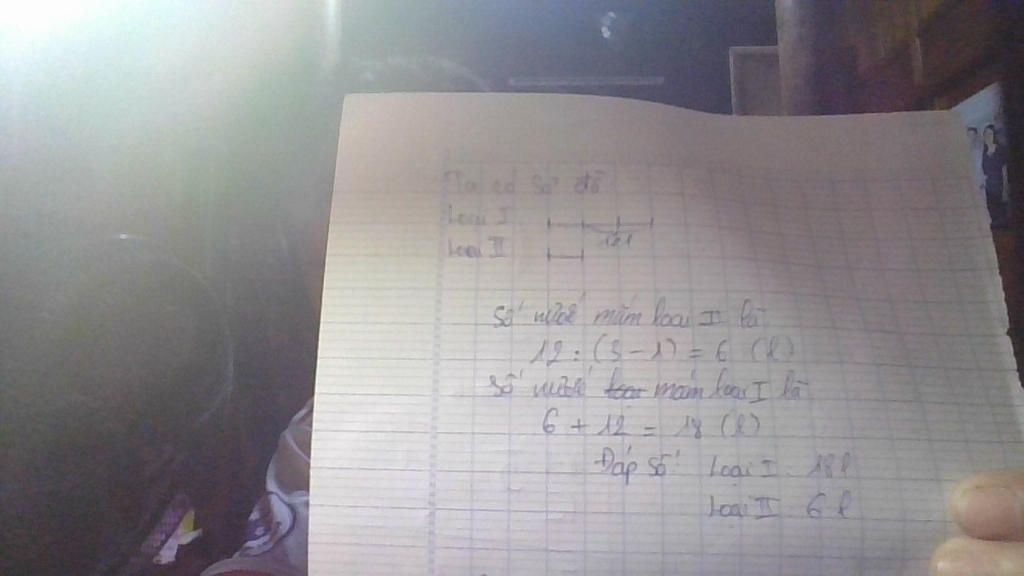 Ta có sơ đồ
Loại I
12 l
Loại II
Số nước mắm loại II là
12 : (3 - 1) = 6 (l)
Số nước mắm loại I là
6 + 12 = 18 (l)
Đáp số: Loại I : 18 l
Loại II : 6 l